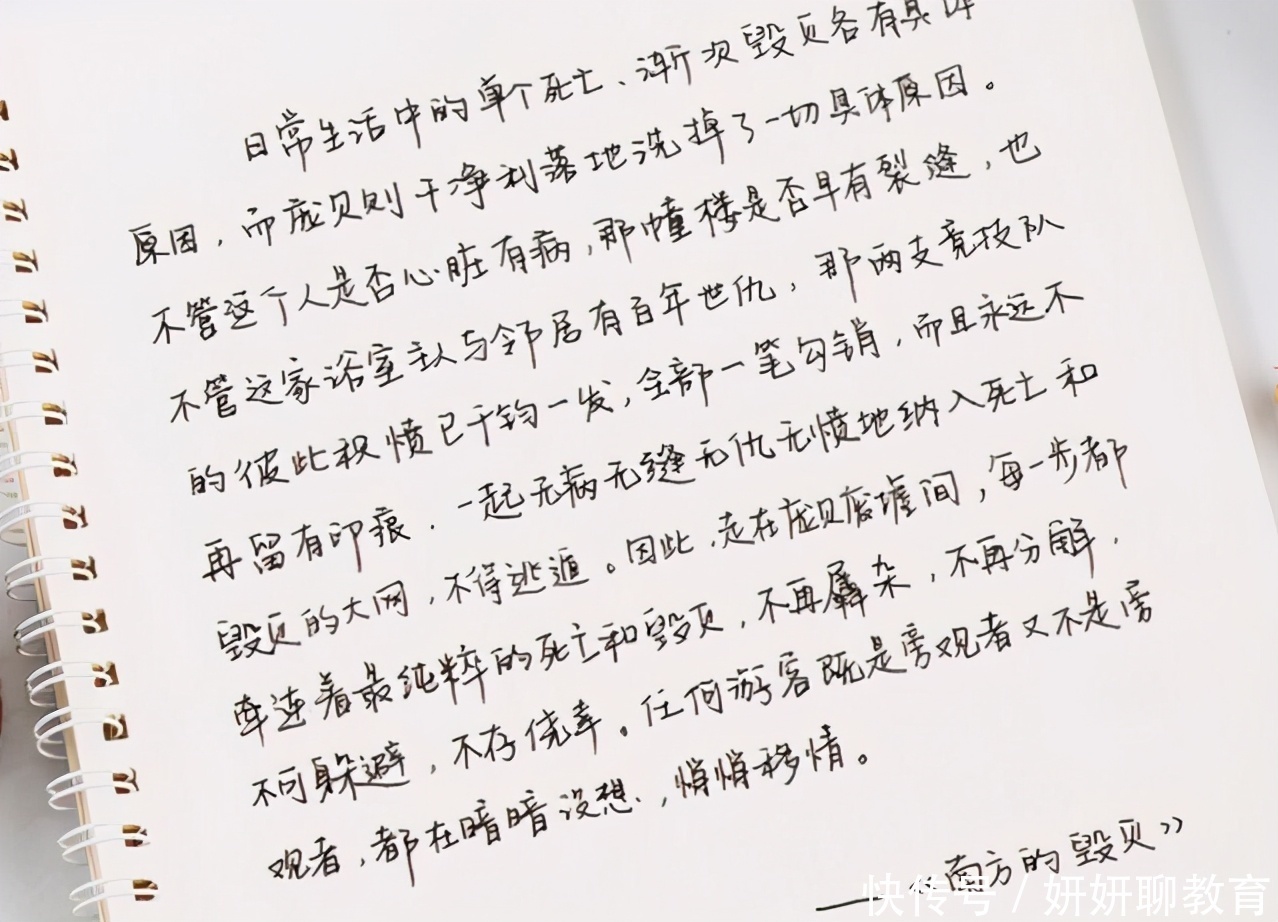 日常生活中的单个死亡、渐次毁灭各有具体
原因，而庞贝则干净利落地洗掉了一切具体原因。
不管这个人是否心脏有病，那幢楼是否早有裂缝，也
不管这家浴室主人与邻居有百年世仇，那两支竞技队
的彼此积愤已千钧一发，全部一笔勾销，而且永远不
再留有印痕．一起无病无缝无仇无愤地纳入死亡和
毁灭的大网，不得逃遁。因此，走在庞贝废墟间，每一步都
牵连着最纯粹的死亡和毁灭，不再羼杂，不再分解，
不可躲避，不存侥幸。任何游客既是旁观者又不是旁
观者，都在暗暗设想，悄悄移情。
——《南方的毁灭》
快传号 / 妍妍聊教育